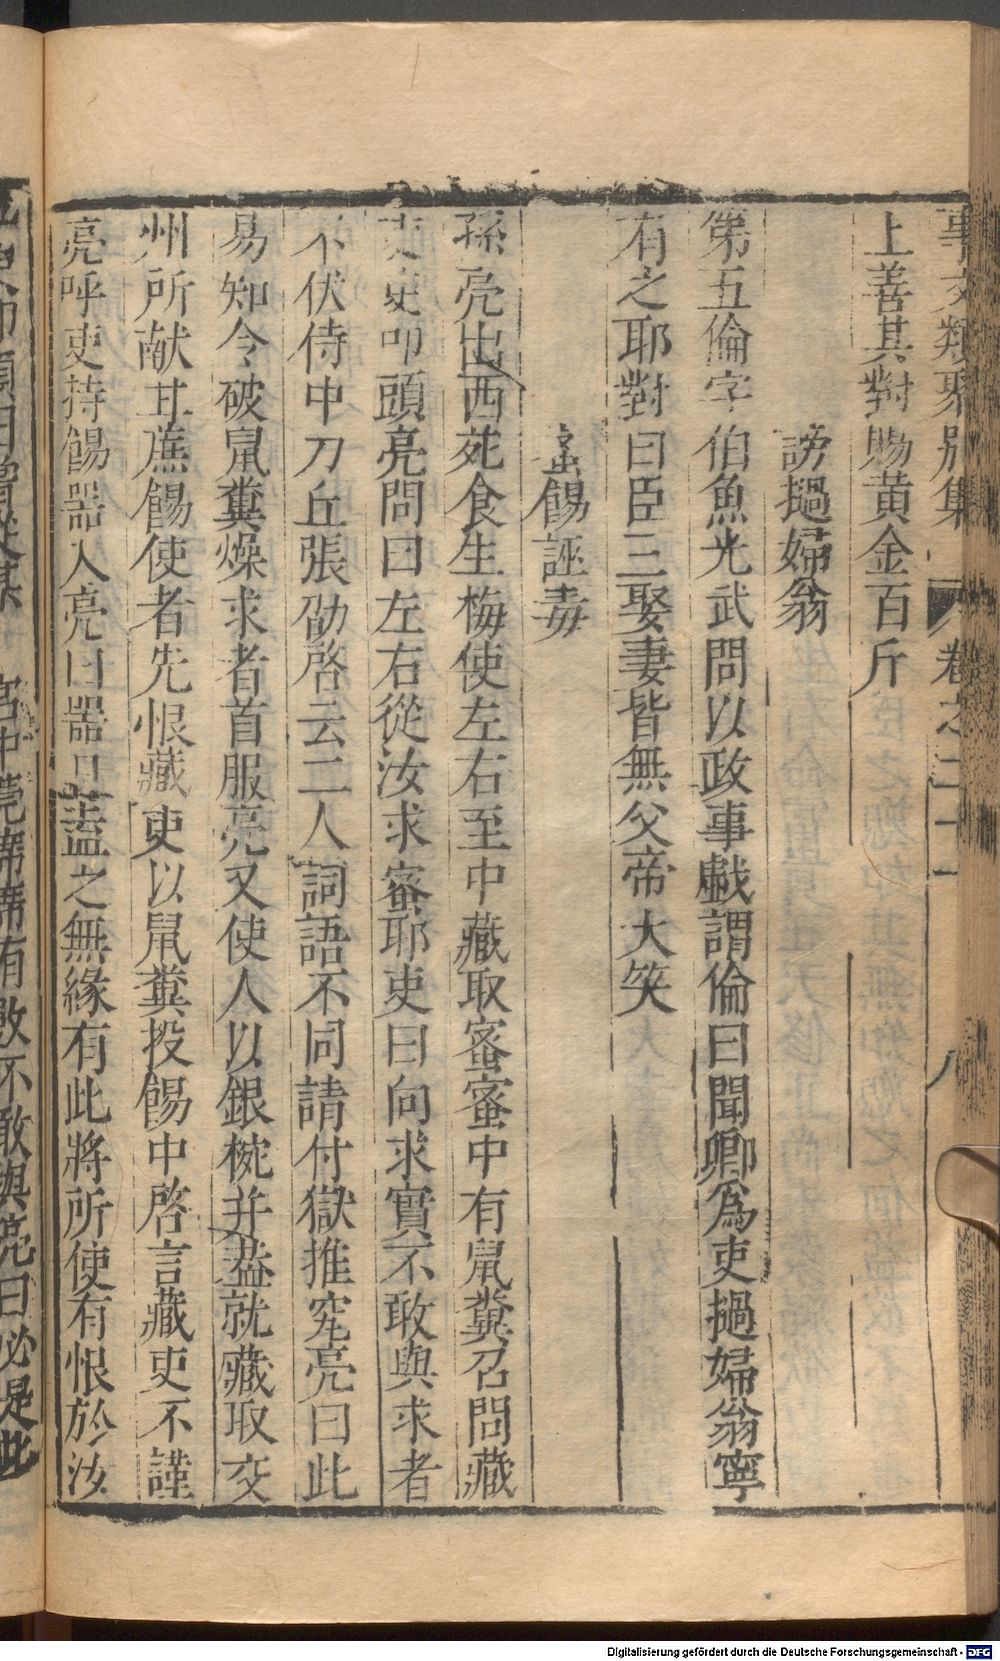 事文類聚別集 卷之二十 八
上善其對賜黃金百斤
謗撾婦翁
第五倫字伯魚光武問以政事戱謂倫曰聞卿爲吏撾婦翁寧
有之耶對曰臣三娶妻皆無父帝大笑
蜜餳誣毒
孫亮出西苑食生梅使左右至中藏取蜜蜜中有鼠糞召問藏
吏吏叩頭亮問曰左右從汝求蜜耶吏曰向求實不敢與求者
不伏侍中刀丘張劭啓云二人詞語不同請付獄推究亮曰此
易知令破鼠糞燥求者首服亮又使人以銀椀并葢就藏取交
州所献甘蔗餳使者先恨藏吏以鼠糞投餳中啓言藏吏不謹
亮呼吏持餳器入亮曰器旣葢之無緣有此將所使有恨於汝
宮中莞席席有数不敢與亮曰必是此
Digitalisierung gefördert durch die Deutsche Forschungsgemeinschaft - DFG